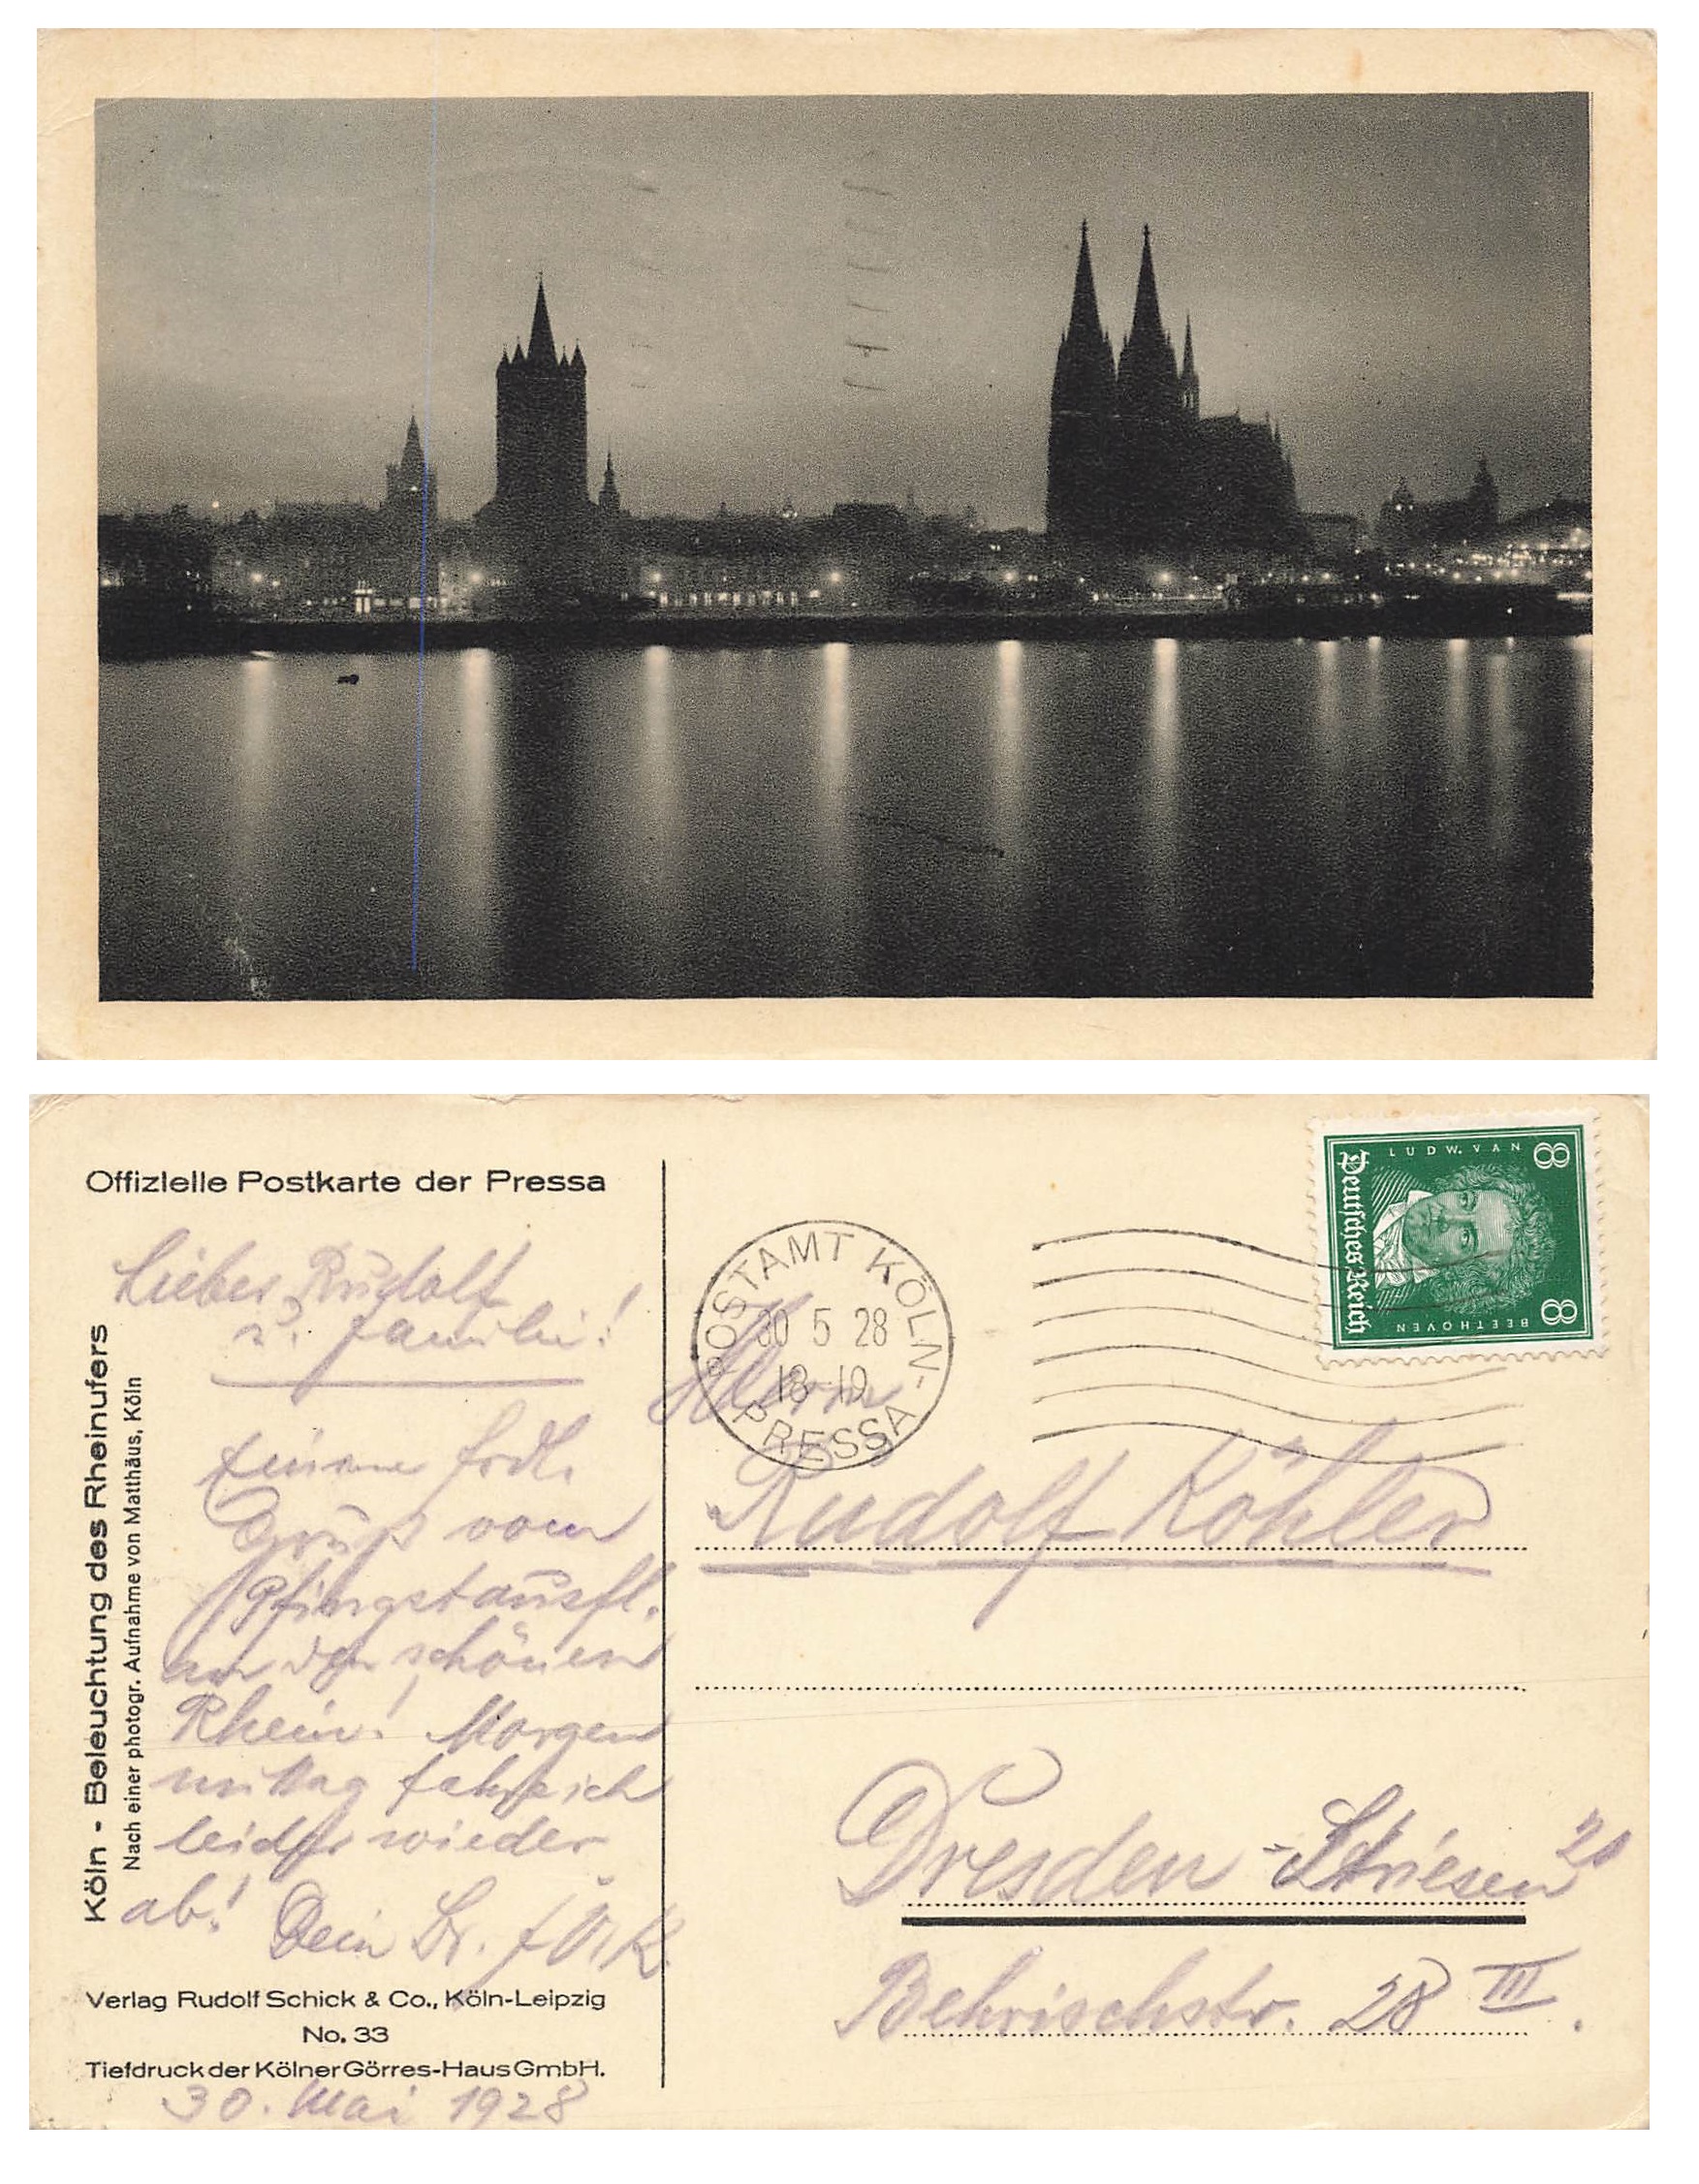 Offizielle Postkarte der Pressa
Lieber Rudolf
u. Familie!
Einen frdl.
Gruß vom
Pfingstausfl.
an den schönen
Rhein! Morgen
mittag fahre ich
leider wieder
ab!
Dein Br.
Köln - Beleuchtung des Rheinufers
Nach einer photogr. Aufnahme von Matthäus, Köln
Verlag Rudolf Schick & Co., Köln-Leipzig
No. 33
Tiefdruck der Kölner Görres-Haus GmbH.
30. Mai 1928
POSTAMT KÖLN-
30 5 28
18-19
PRESSA
LUDW. VAN
BEETHOVEN
8
8
Deutsches Reich
Herrn
Rudolf Köhler
Dresden-Striesen
Behrischstr. 28 III.